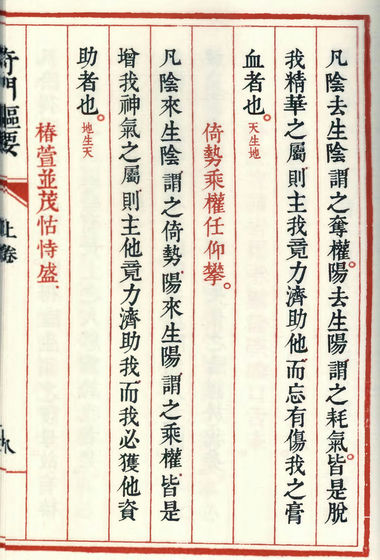 凡陰去生陰謂之奪權。陽去生陽謂之耗氣。皆是脫
我精華之屬則主我竟力濟助他而忘有傷我之膏
血者也。天生地
倚勢乘權任仰攀。
凡陰來生陰謂之倚勢陽來生陽謂之乘權皆是
增我神氣之屬則主他竟力濟助我而我必獲他資
助者也。地生天
椿萱並茂怙恃盛
奇門樞要
上卷
八